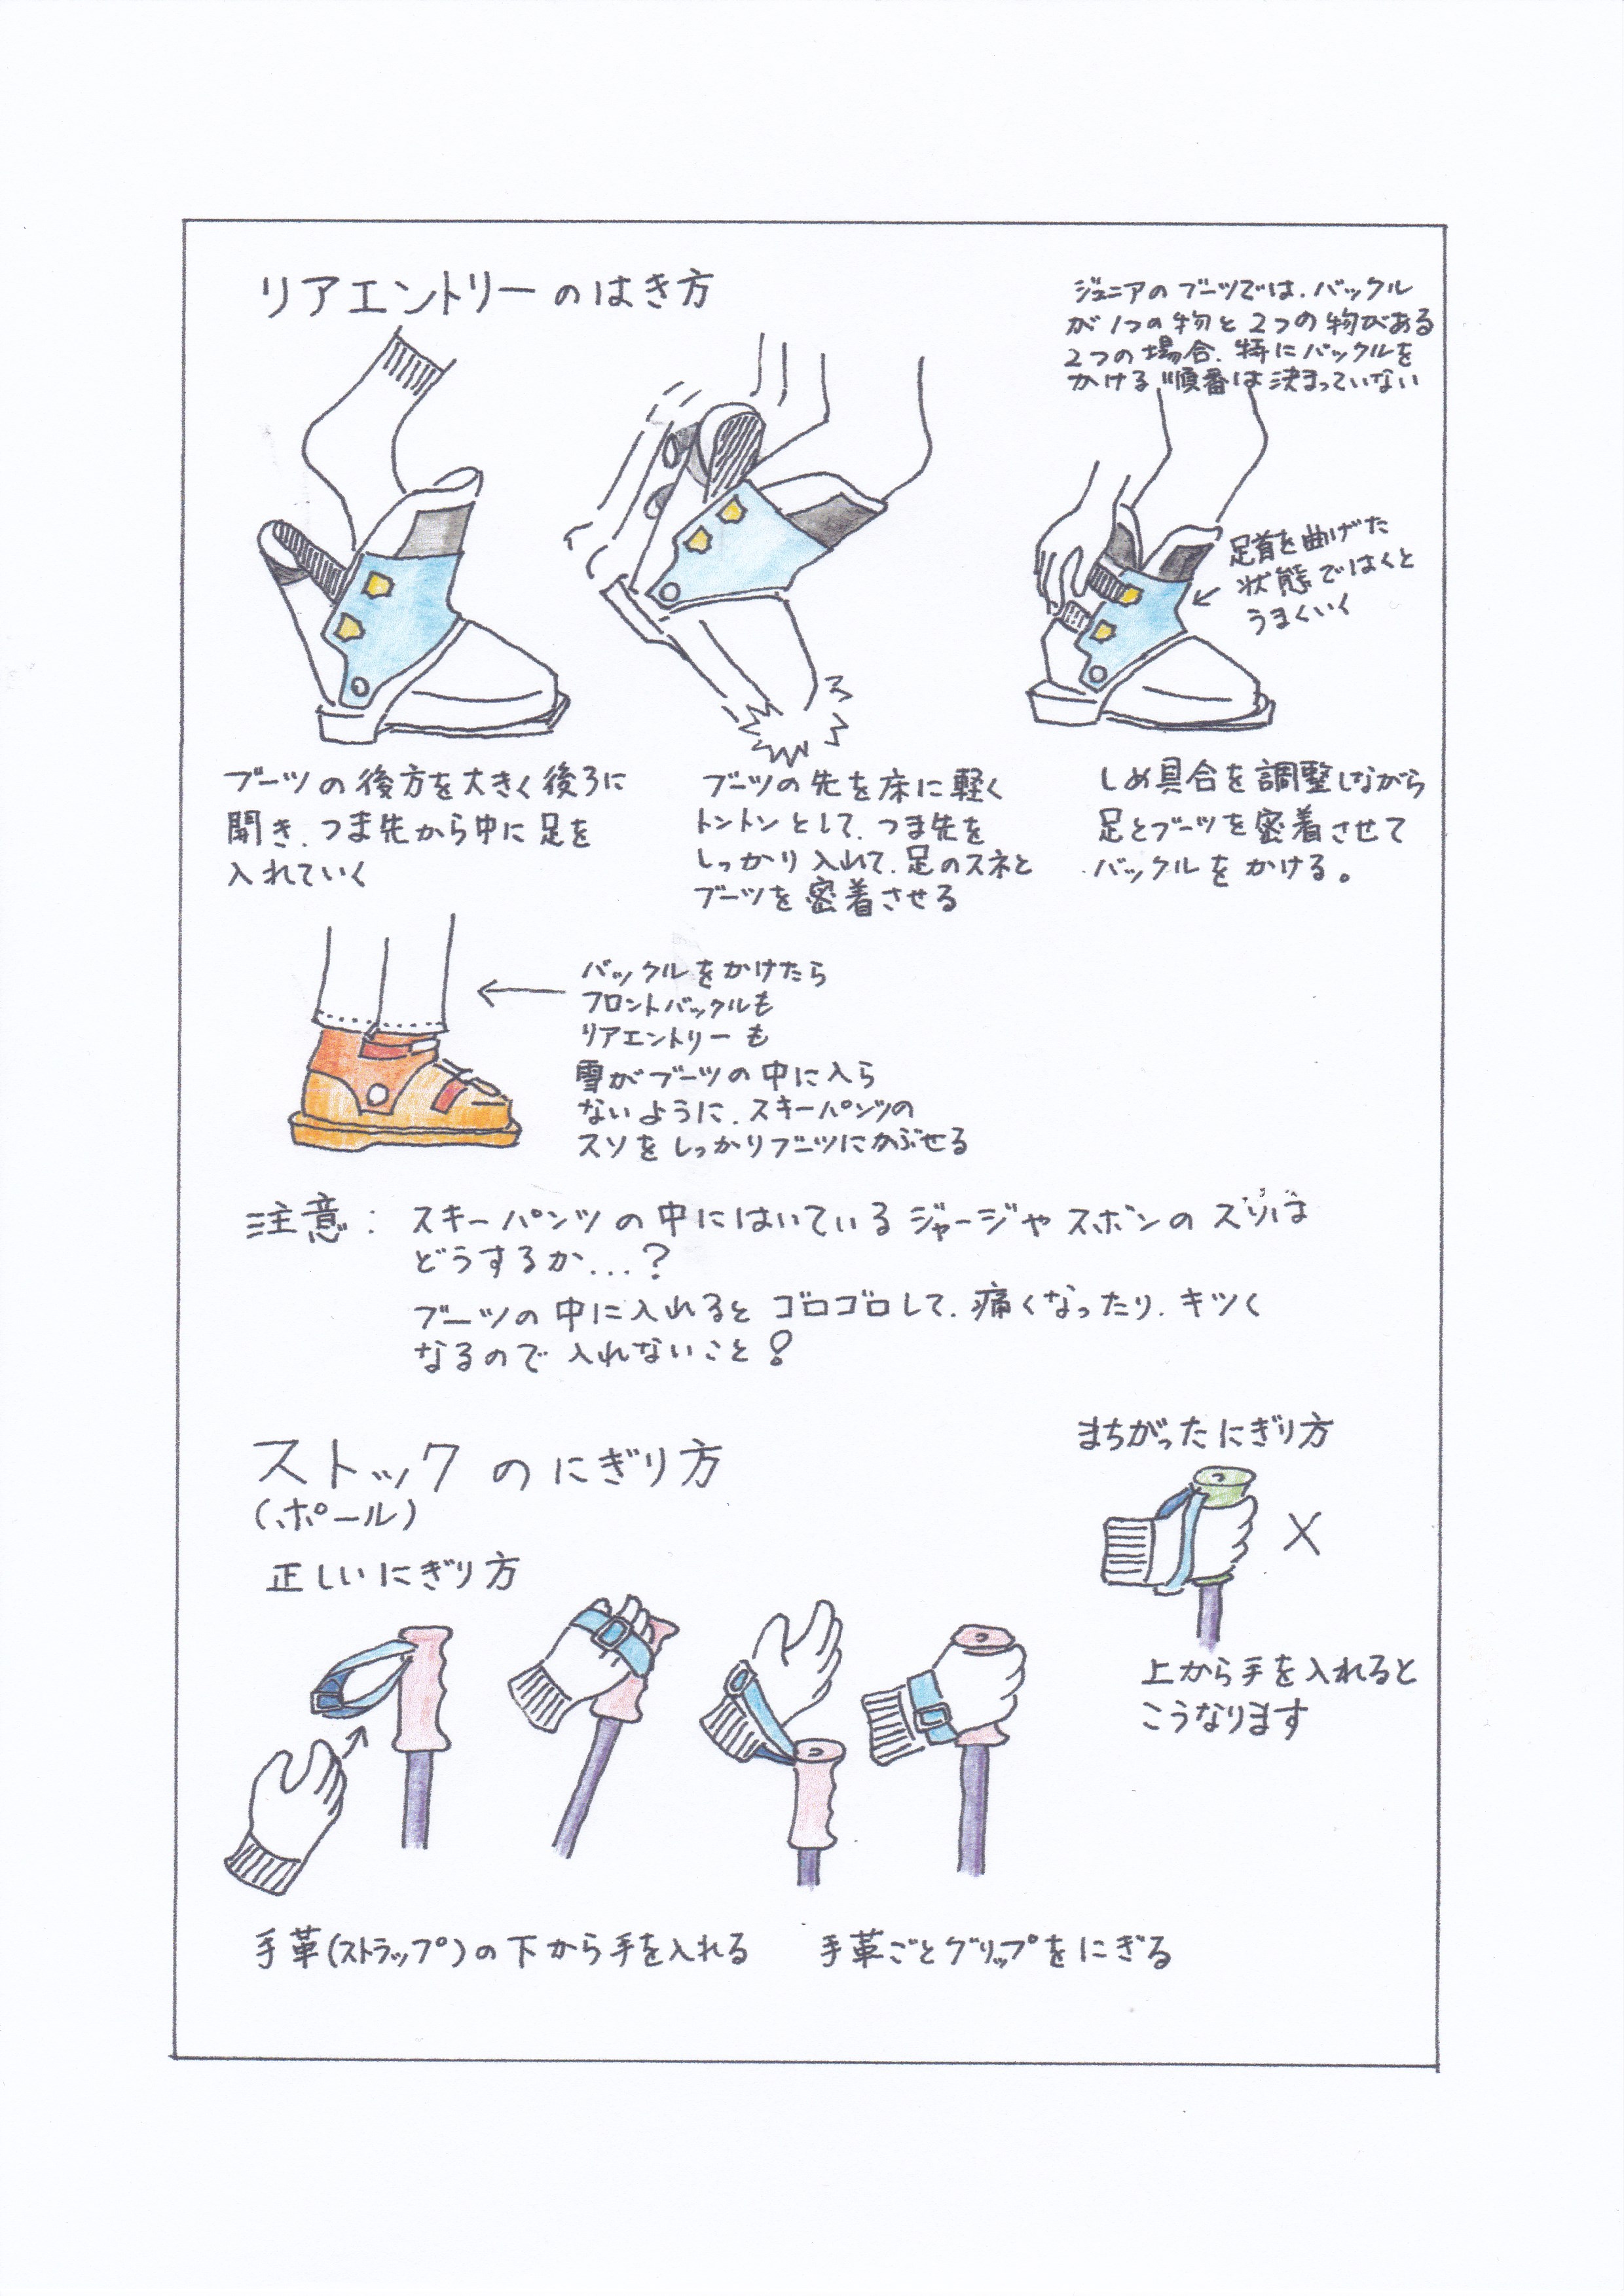 リアエントリーのはき方
ジュニアのブーツでは、バックル
が1つの物と2つの物がある
2つの場合、特にバックルを
かける順番は決まっていない
足首を曲げた
状態ではくと
うまくいく
ブーツの後方を大きく後ろに
開き、つま先から中に足を
入れていく
ブーツの先を床に軽く
トントンとして、つま先を
しっかり入れて、足のスネと
ブーツを密着させる
しめ具合を調整しながら
足とブーツを密着させて
バックルをかける。
バックルをかけたら
フロントバックルも
リアエントリーも
雪がブーツの中に入ら
ないように、スキーパンツの
スソをしっかりブーツにかぶせる
注意: スキーパンツの中にはいているジャージやズボンのスソは
どうするか...?
ブーツの中に入れるとゴロゴロして、痛くなったり、キツく
なるので入れないこと!
ストックのにぎり方
(ポール)
正しいにぎり方
まちがったにぎり方
×
上から手を入れると
こうなります
手革(ストラップ)の下から手を入れる
手革ごとグリップをにぎる